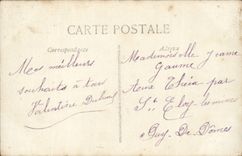 CARTE POSTALE
Correspondance
Adresse
Mes meilleurs
souhaits à tous
Valentine
Mademoiselle Jeanne
Gaume
par
St Eloy les mines
Puy-De-Dômes